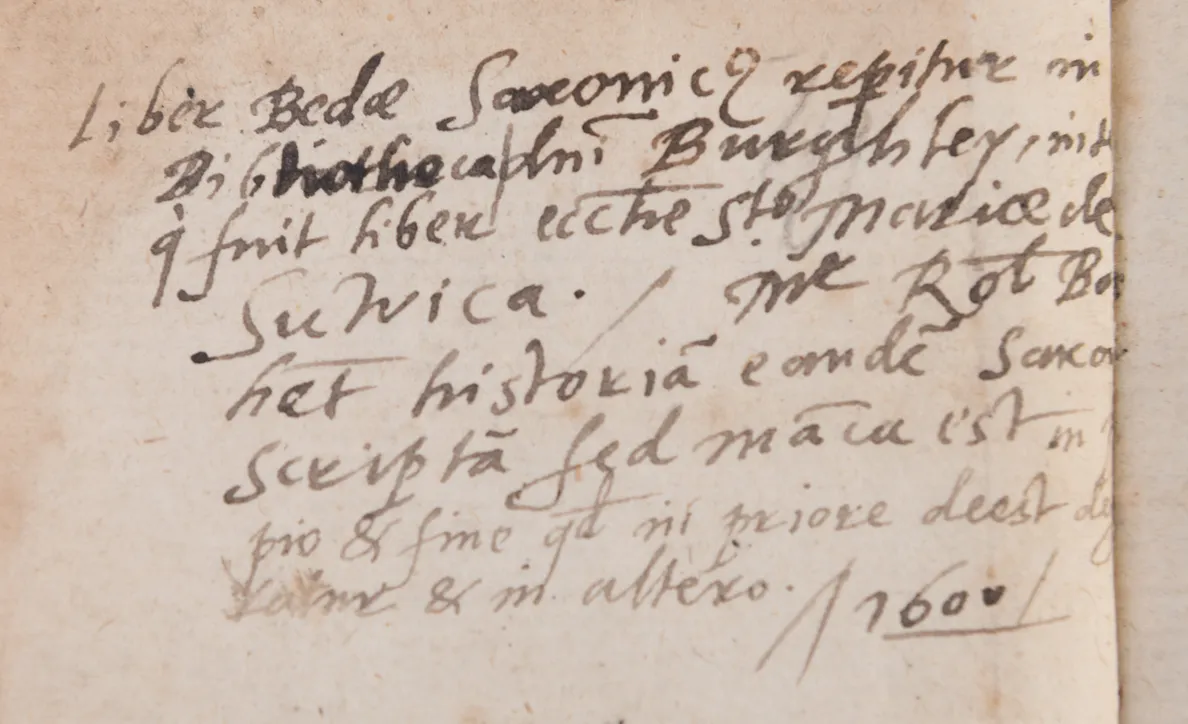 Liber Bedæ Saxonicꝯ rep̱itur in
Bibliotheca dn̄i Burghley, int
q̇ fuit liber eccl̄ie Stæ Mariæ de
Suwica. / Mr Robt̄
hēt historiā eandē Saxo
scriptā sed māca est in
pio & fine qd̄ in priore deest
& in altero. // 1600 /